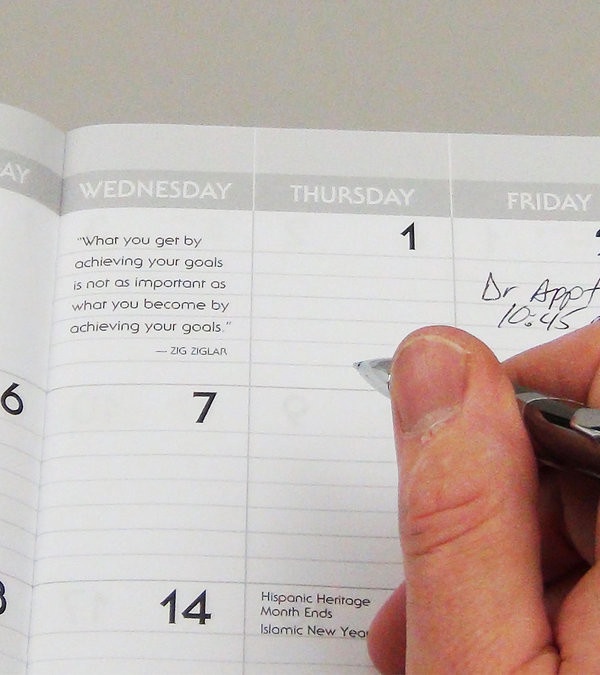 AY WEDNESDAY THURSDAY FRIDAY
1
"What you get by
achieving your goals
is not as important as
what you become by
achieving your goals."
— ZIG ZIGLAR
Dr Appt
10:45
6 7
14
Hispanic Heritage
Month Ends
Islamic New Year